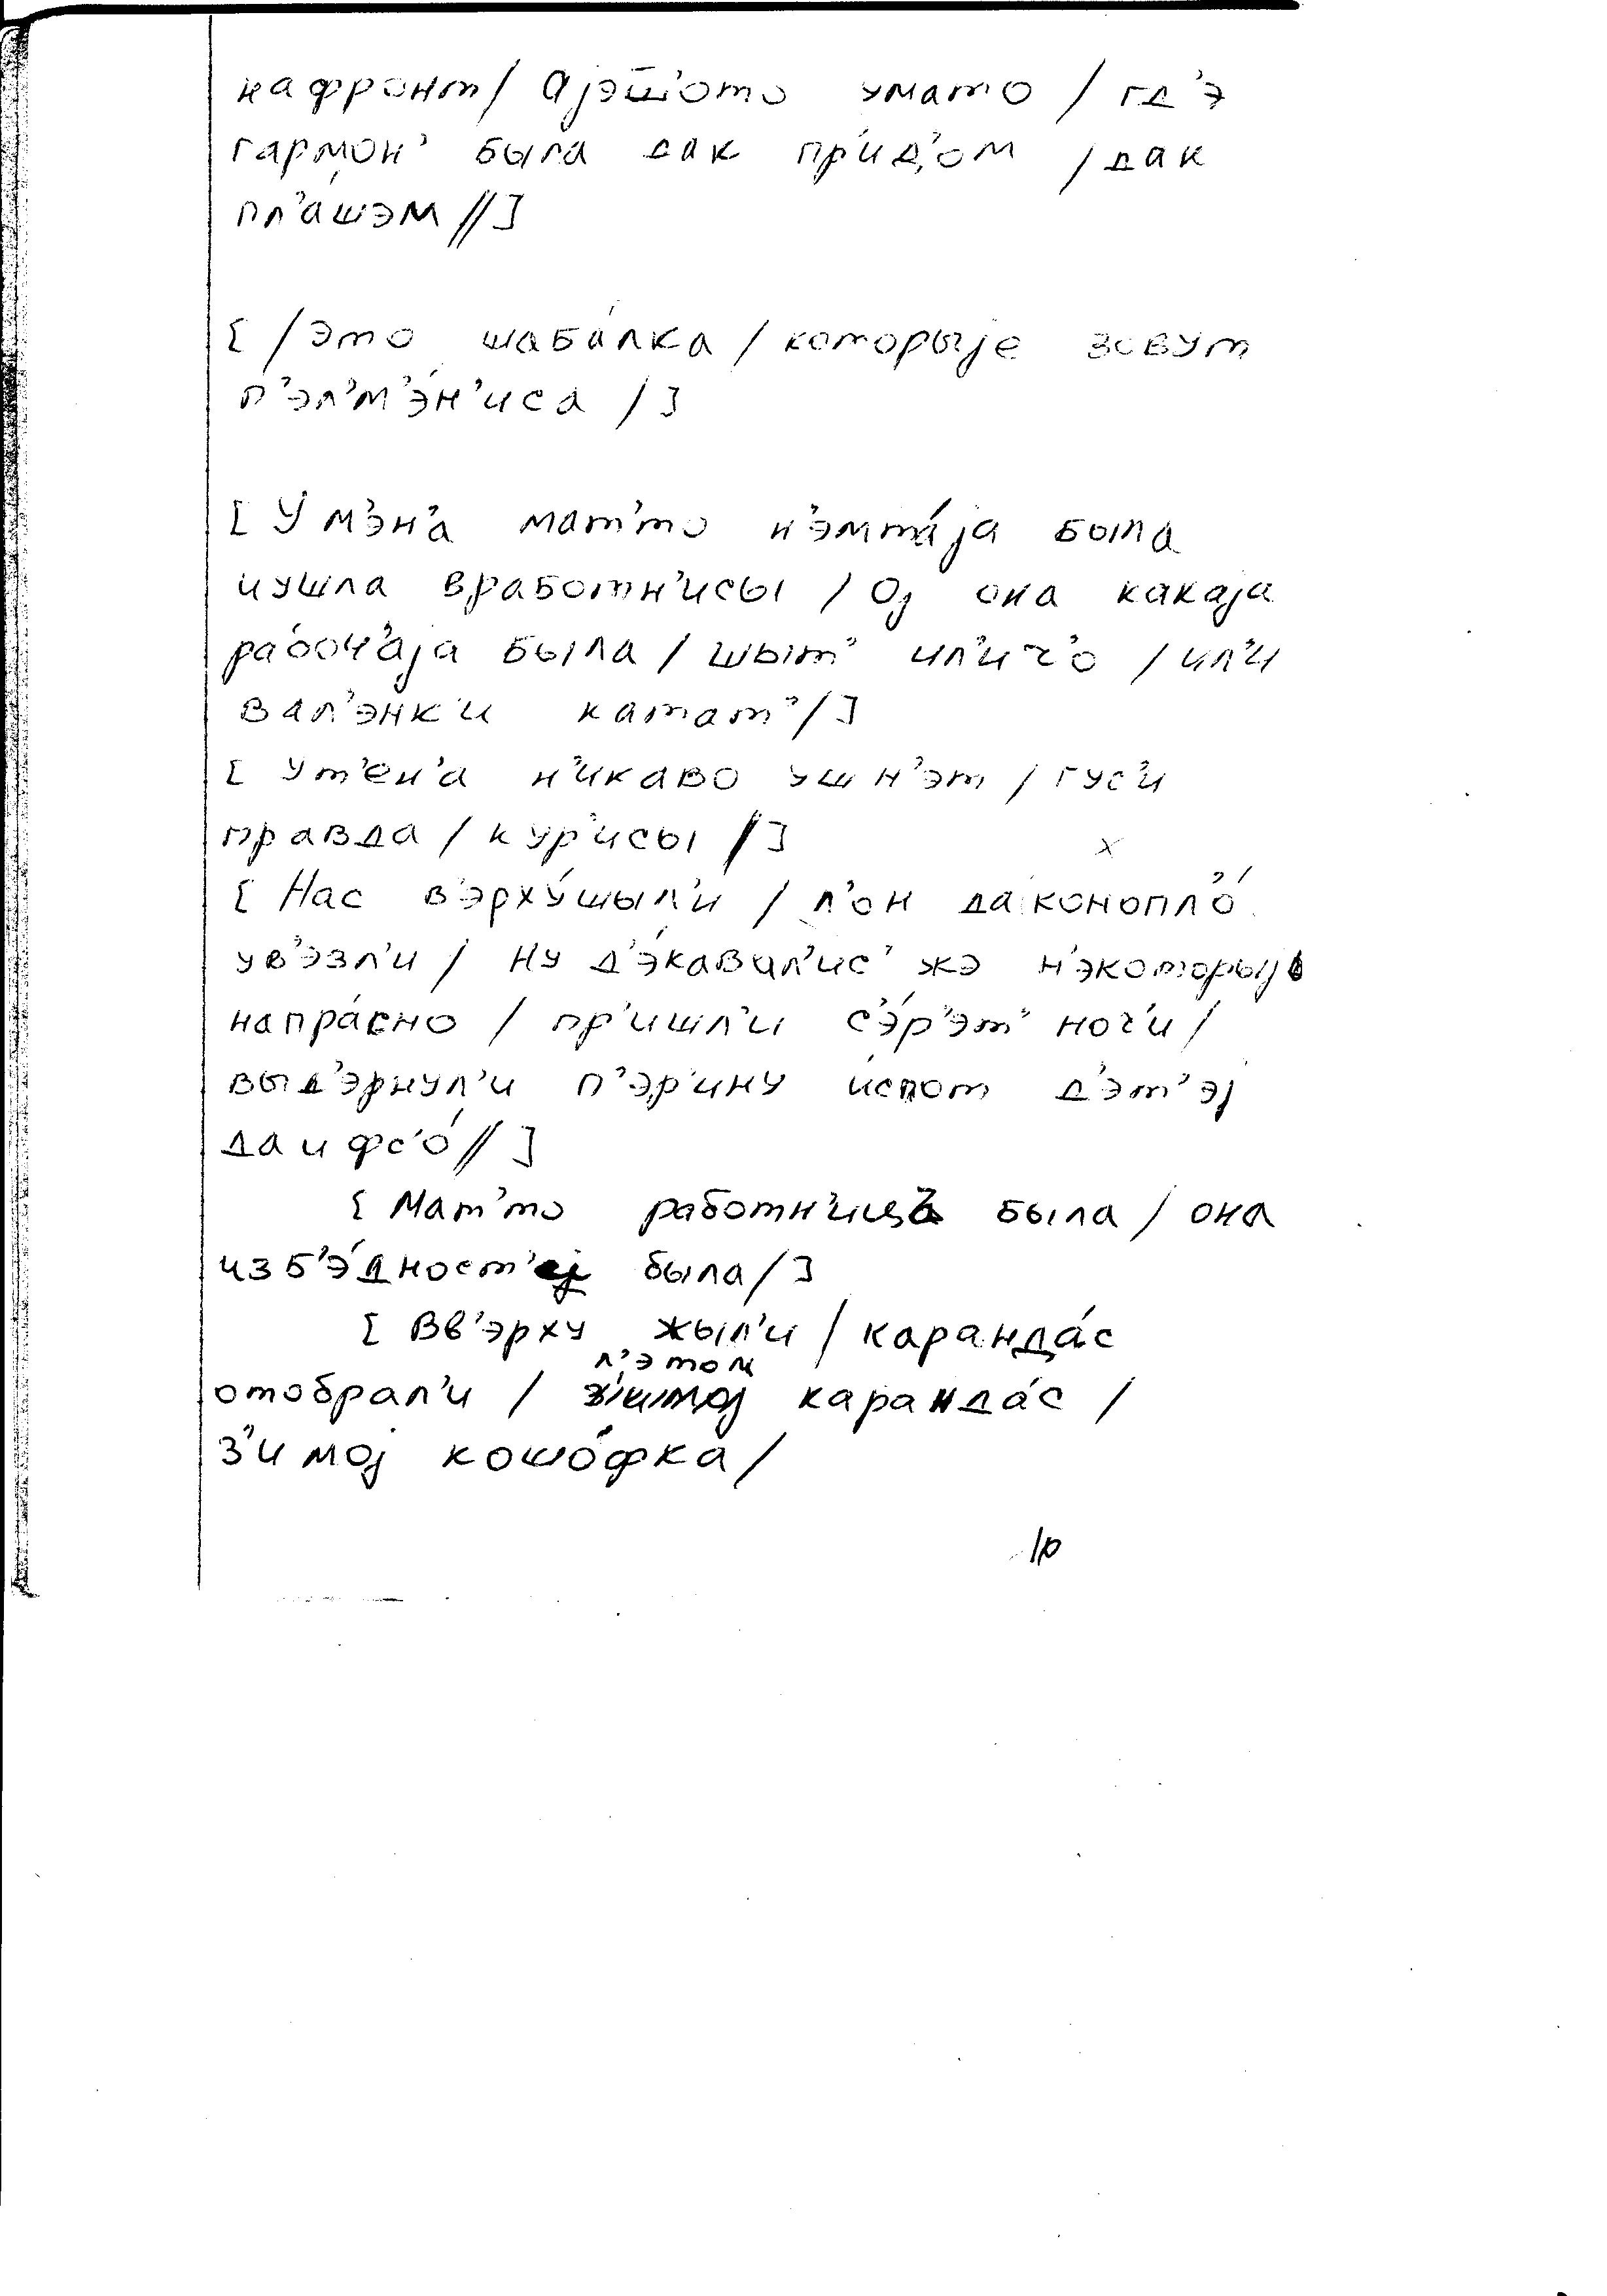 нафронт/ Аjэш'ото умато / гд'э
гармон' была дак пр'ид'ом / дак
пл'ашэм //]
[ /это шаба́лка / которыје зовут
п'эл'м'э́н'иса /]
[ У м'эн'а мат'то н'эмта́jа была
иушла вработн'исы / Оj она какаjа
рабоч'аjа была / шыт' ил'и ч'о / ил'и
вал'энк'и катат' /]
[ Ут'ен'а н'икаво уш н'эт / гус'и
правда / кур'исы /]
х
[ Нас в'эрху́шыл'и / л'он да конопл'о́
ув'эзл'и / Ну д'э́кавал'ис' жэ н'экоторыjе
напра́сно / пр'ишл'и с'э́р'эт' ноч'и /
выд'эрнул'и п'эр'ину испот д'эт'эj
да и фс'о́ //]
[ Мат'то работн'ица была / она
из б'э́дност'еj была /]
[ Вв'эрху жыл'и / каранда́с
л'этом
отобрал'и / з'имоj каранда́с /
з'имоj кошо́фка /
10